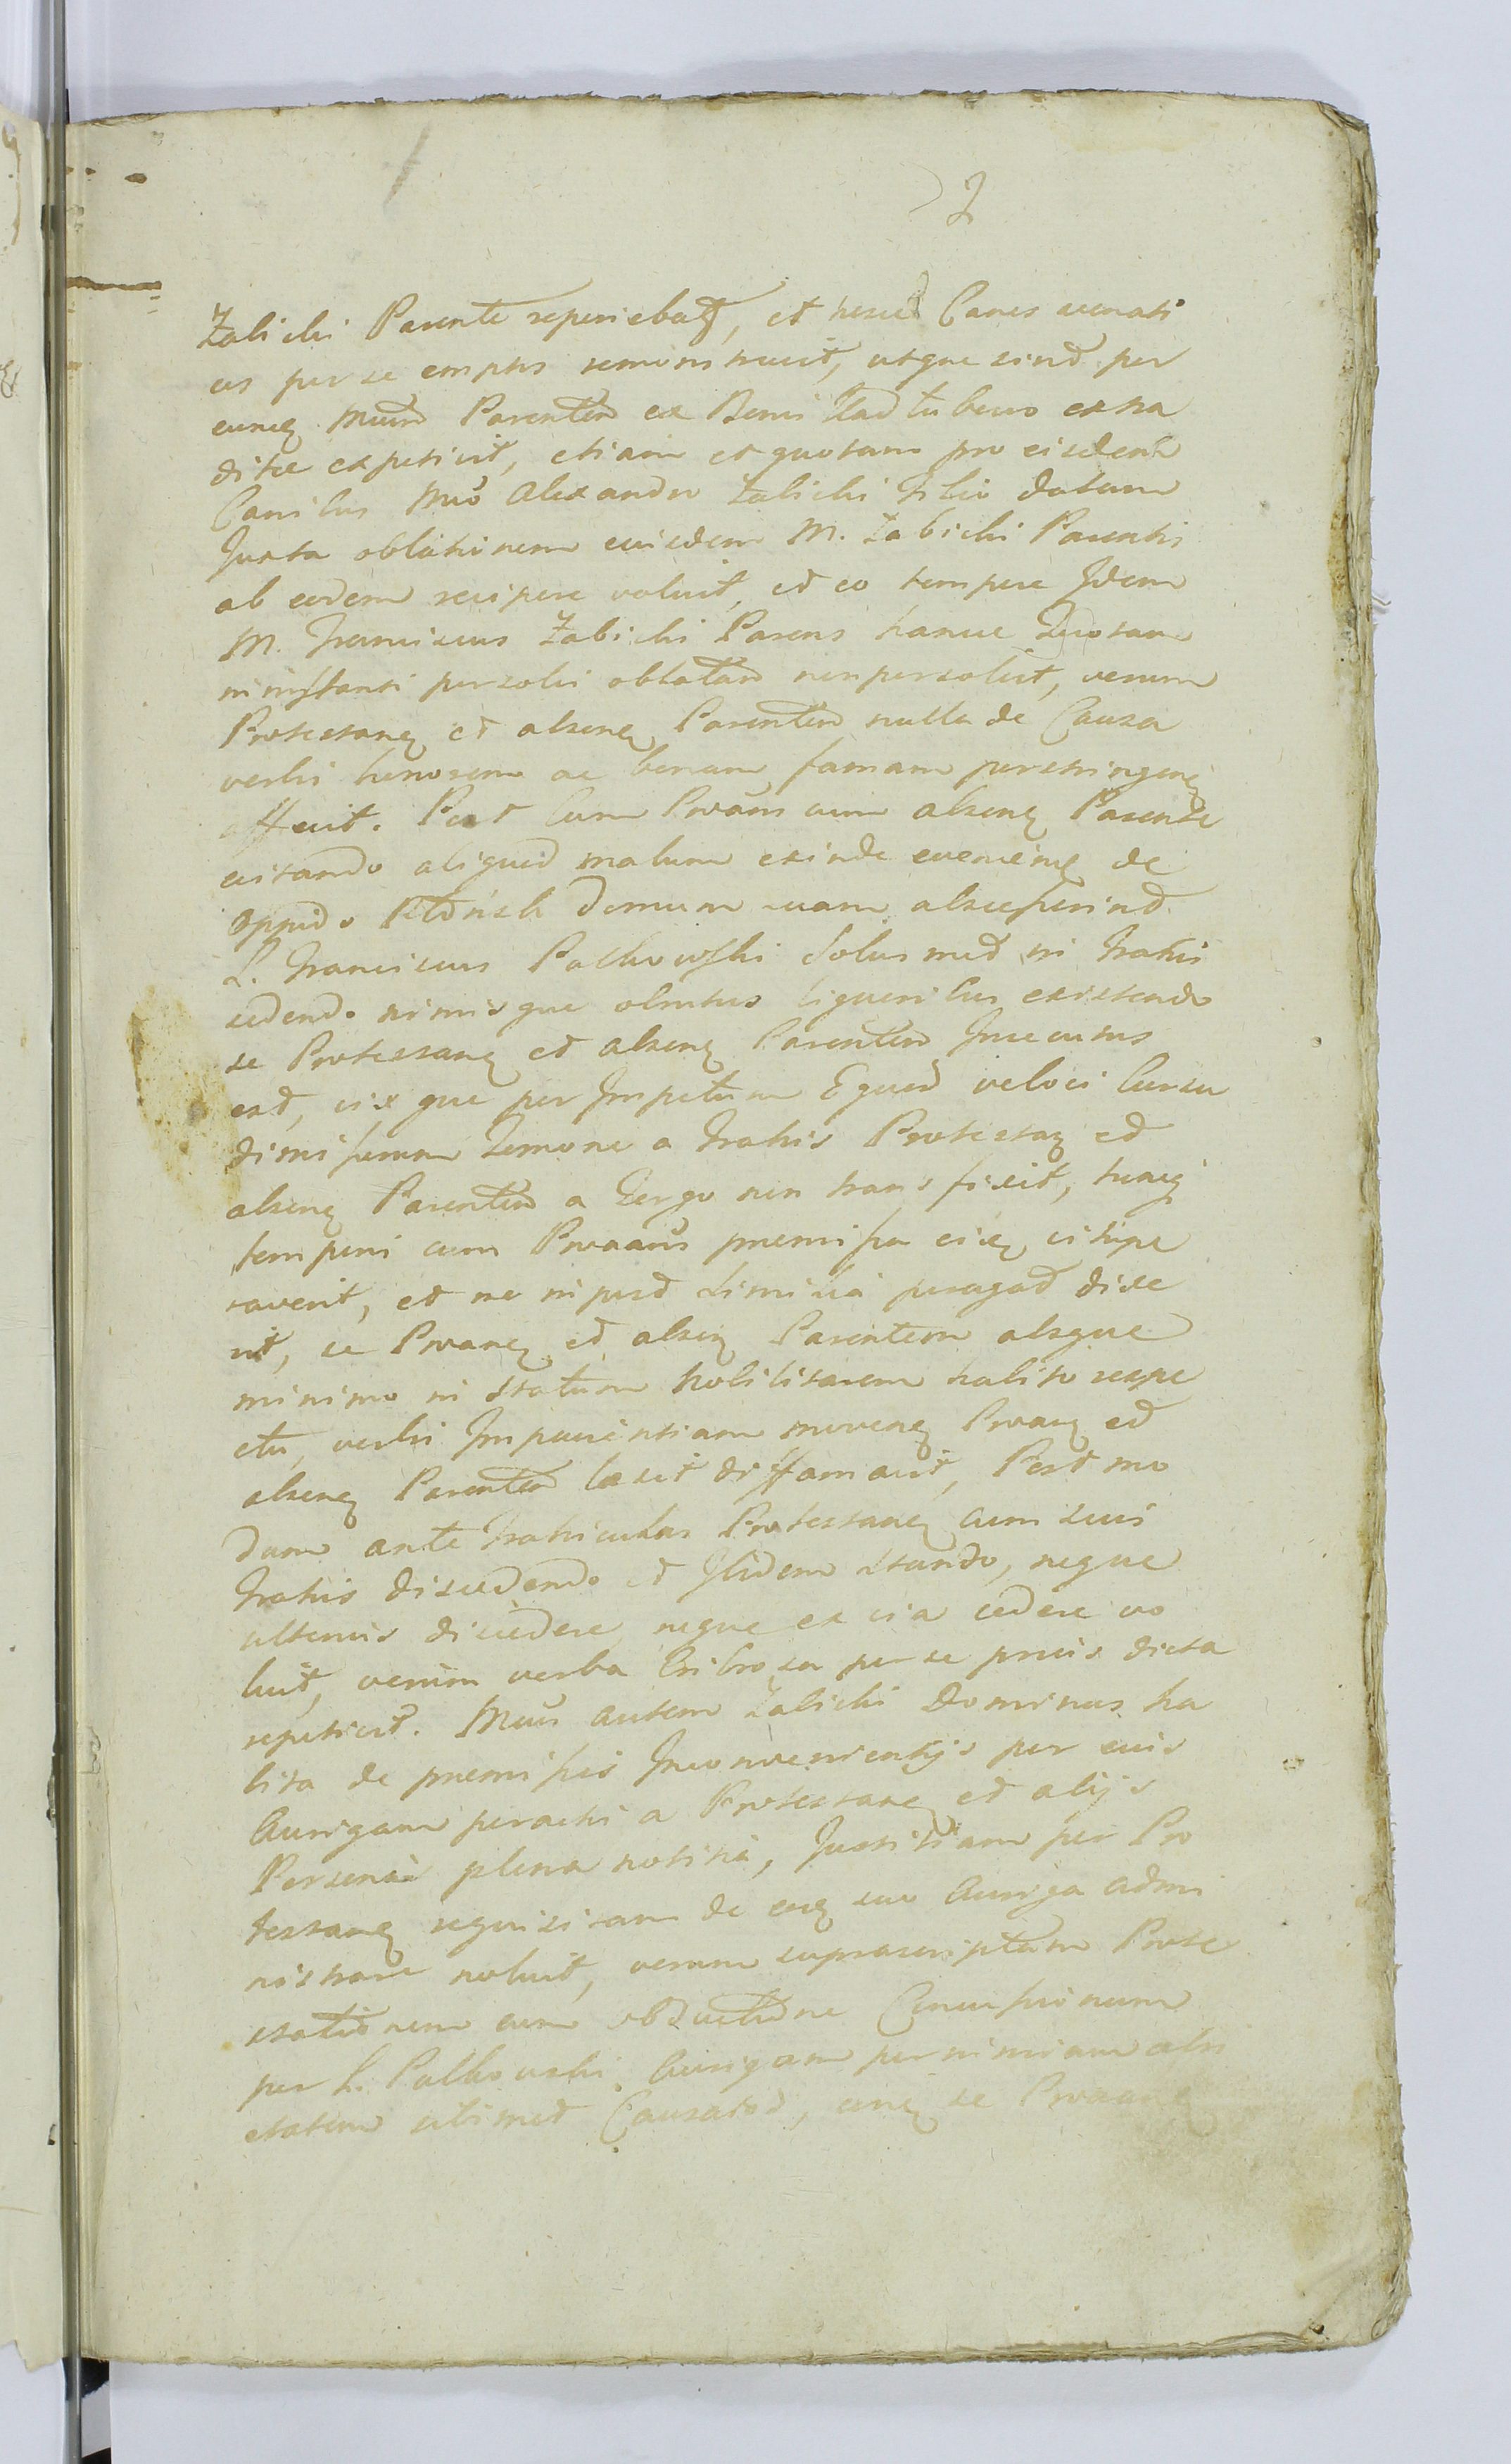 2
Zabicki Parente reperiebatur, et hosce Canes venati
cos per se emptos remonstravit, utque sint per
eunq Mum Parentem ex Benni Stad tubero extra
ditae expetivit, etiam et quotam pro eisdem
Canibus Mco Alexandro Zabicki Filio datam
Juxta oblationem eiusdem M. Zabicki Parentis
ab eodem recipere voluit, et eo tempore Idem
M. Franciscus Zabicki Parens hance Quotam
in instanti persolvi oblatam non persolvit, verum
Protestanq et absenq Parentem nulla de Causa
verbis honorem ac bonam famam perstringenq
affecit. Post Cum Proans cum absenq Parente
evitando aliquid malum exinde eveniens de
Oppido domum suam abscesserint
L. Franciscus Paszkowski Solus met in Trahis
sedendo nimisque obrutus liquoribus existendo
se Protestanq et absenq Parentem Insecutus
est, vix que per Impetum Equor veloci Cursu
dimissum Temone a Trahis Protestaq et
absenq Parentem a Tergo non transfixit, hucq
tempori cum Proaans praemissa eisq vitupe
raverit, et ne in post Similia peragat dixe
rit, se Proanq et absenq Parentem absque
minimo in Statum Nobilitarem habito respe
ctu, verbis Impatientiam movenq Proanq et
absenq Parentem laesit diffamavit, Post mo
dum ante Trahiculas Protestanq cum suis
Trahis discedendo et Ibidem stando, neque
ulterius discedere neque ex via cedere vo
luit, verum verba Cribrosa per se prius dicta
repetivit. Mcus autem Zabicki Dominus ha
bita de praemissis Inconvenientijs per euis
Aurigam peractis a Protestanq et alijs
Personis plena notitia, Justitiam per Pro
testanq requisitam de eoq suo Auriga admi
nistrare noluit, verum suprascriptam Prote
stationem cum obductione Concussionum
per L. Paszkowski Aurigam per nimiam ebri
etatem sibimet Causator, cunq se Proanq